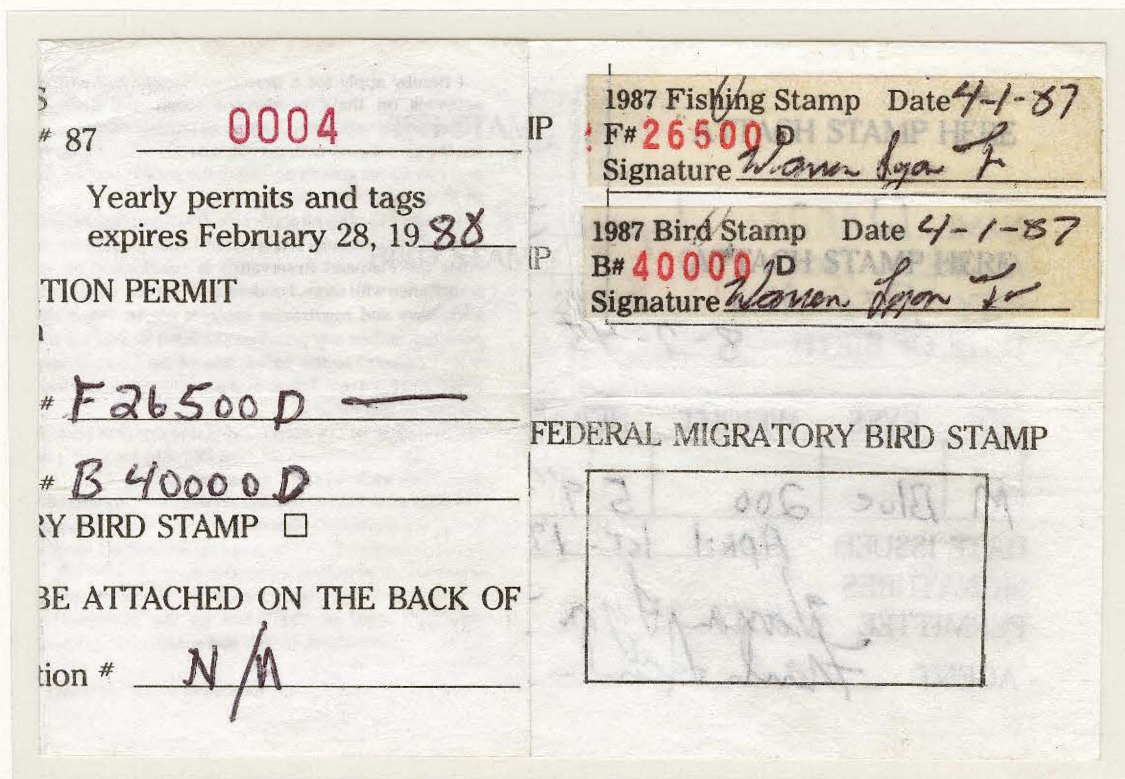 S
# 87 0004
Yearly permits and tags
expires February 28, 1988
TION PERMIT
# F26500D —
# B 40000D
RY BIRD STAMP ☐
BE ATTACHED ON THE BACK OF
tion # N/A
IP
1987 Fishing Stamp Date 4-1-87
F# 26500 D
Signature Warren Lyon Jr
IP
1987 Bird Stamp Date 4-1-87
B# 40000 D
Signature Warren Lyon Jr
FEDERAL MIGRATORY BIRD STAMP